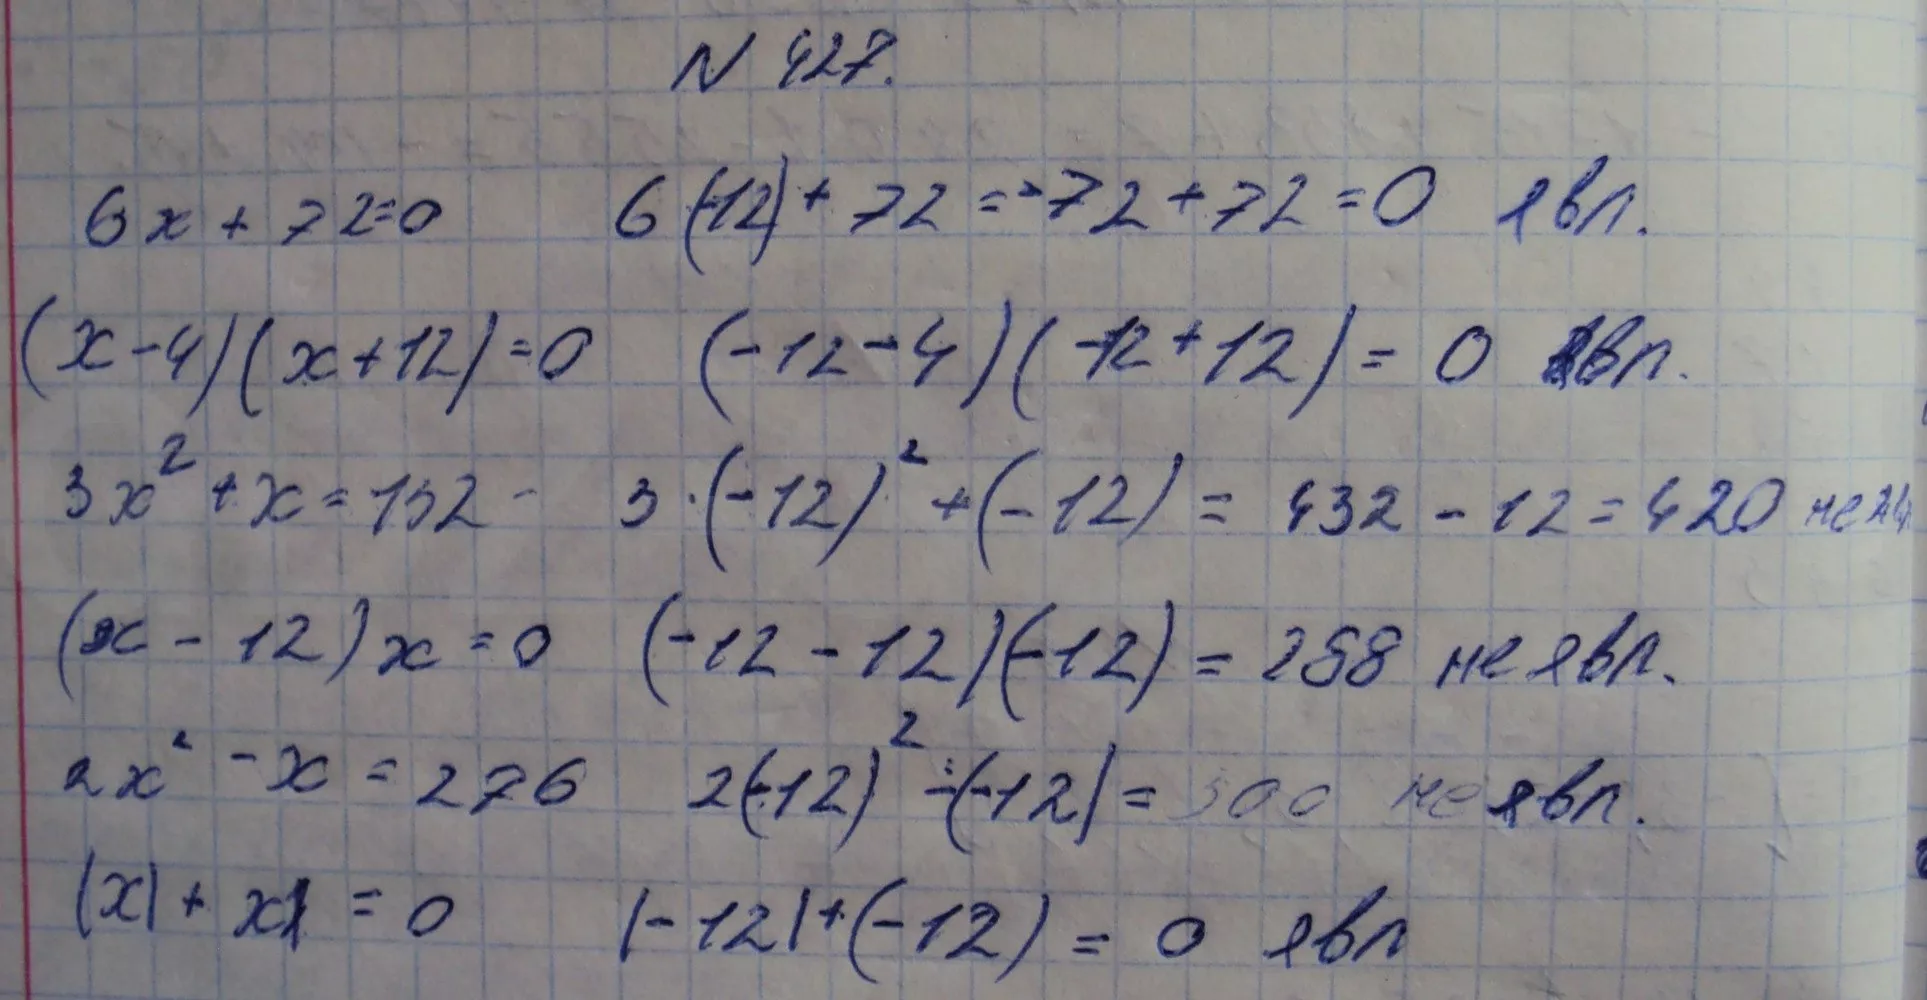 N 427.
6x + 72=0 6(-12) + 72 = -72 + 72 = 0 явл.
(x-4)(x+12)=0 (-12-4)(-12+12) = 0 явл.
3x² + x = 132 - 3·(-12)² + (-12) = 432 - 12 = 420 не явл.
(x - 12)x = 0 (-12 - 12)(-12) = 288 не явл.
2x² - x = 276 2(-12)² - (-12) = 300 не явл.
|x| + x = 0 |-12| + (-12) = 0 явл